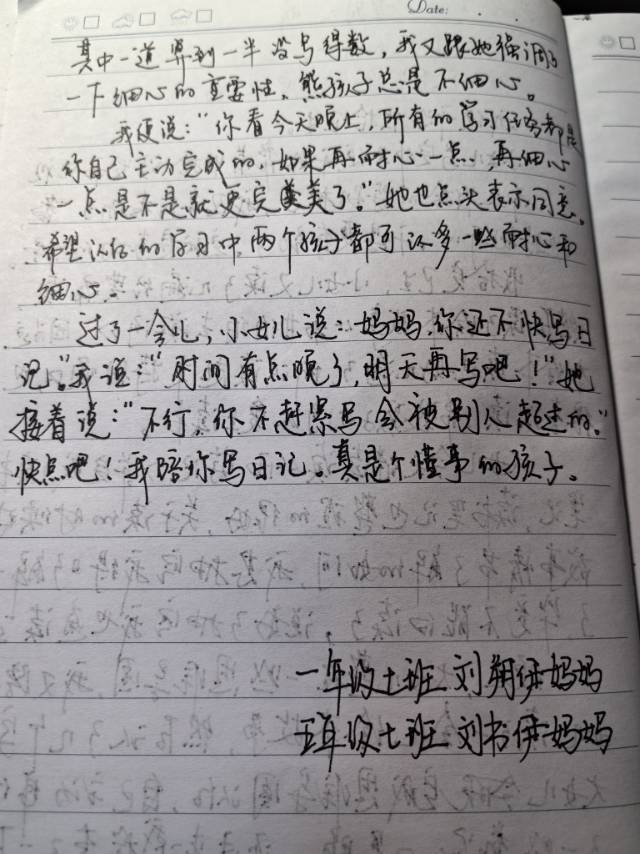 Date:
其中一道算到一半没写得数,我又跟她强调了
一下细心的重要性,熊孩子总是不细心。
我便说:“你看今天晚上,所有的学习任务都是
你自己主动完成的,如果再耐心一点,再细心
一点是不是就更完美了。”她也点头表示同意。
希望以后的学习中两个孩子都可以多一些耐心和
细心。
过了一会儿,小女儿说:妈妈,你还不快写日
记。”我说:“时间有点晚了,明天再写吧!”她
接着说:“不行,你不赶紧写会被别人超过的。”
快点吧!我陪你写日记。真是个懂事的孩子。
一年级七班 刘翔伊妈妈
五年级七班 刘书伊妈妈